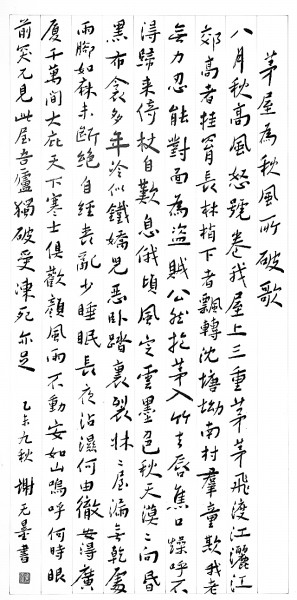 茅屋為秋風所破歌
八月秋高風怒號卷我屋上三重茅茅飛渡江灑江
郊高者挂罥長林梢下者飄轉沈塘坳南村羣童欺我老
無力忍能對面為盜賊公然抱茅入竹去唇焦口燥呼不
得歸來倚杖自歎息俄頃風定雲墨色秋天漠〻向昏
黑布衾多年冷似鐵嬌兒惡卧踏裏裂牀〻屋漏無乾處
雨腳如麻未斷絕自經喪亂少睡眠長夜沾濕何由徹安得廣
廈千萬間大庇天下寒士俱歡顏風雨不動安如山嗚呼何時眼
前突兀見此屋吾廬獨破受凍死亦足
乙未九秋 謝无量書